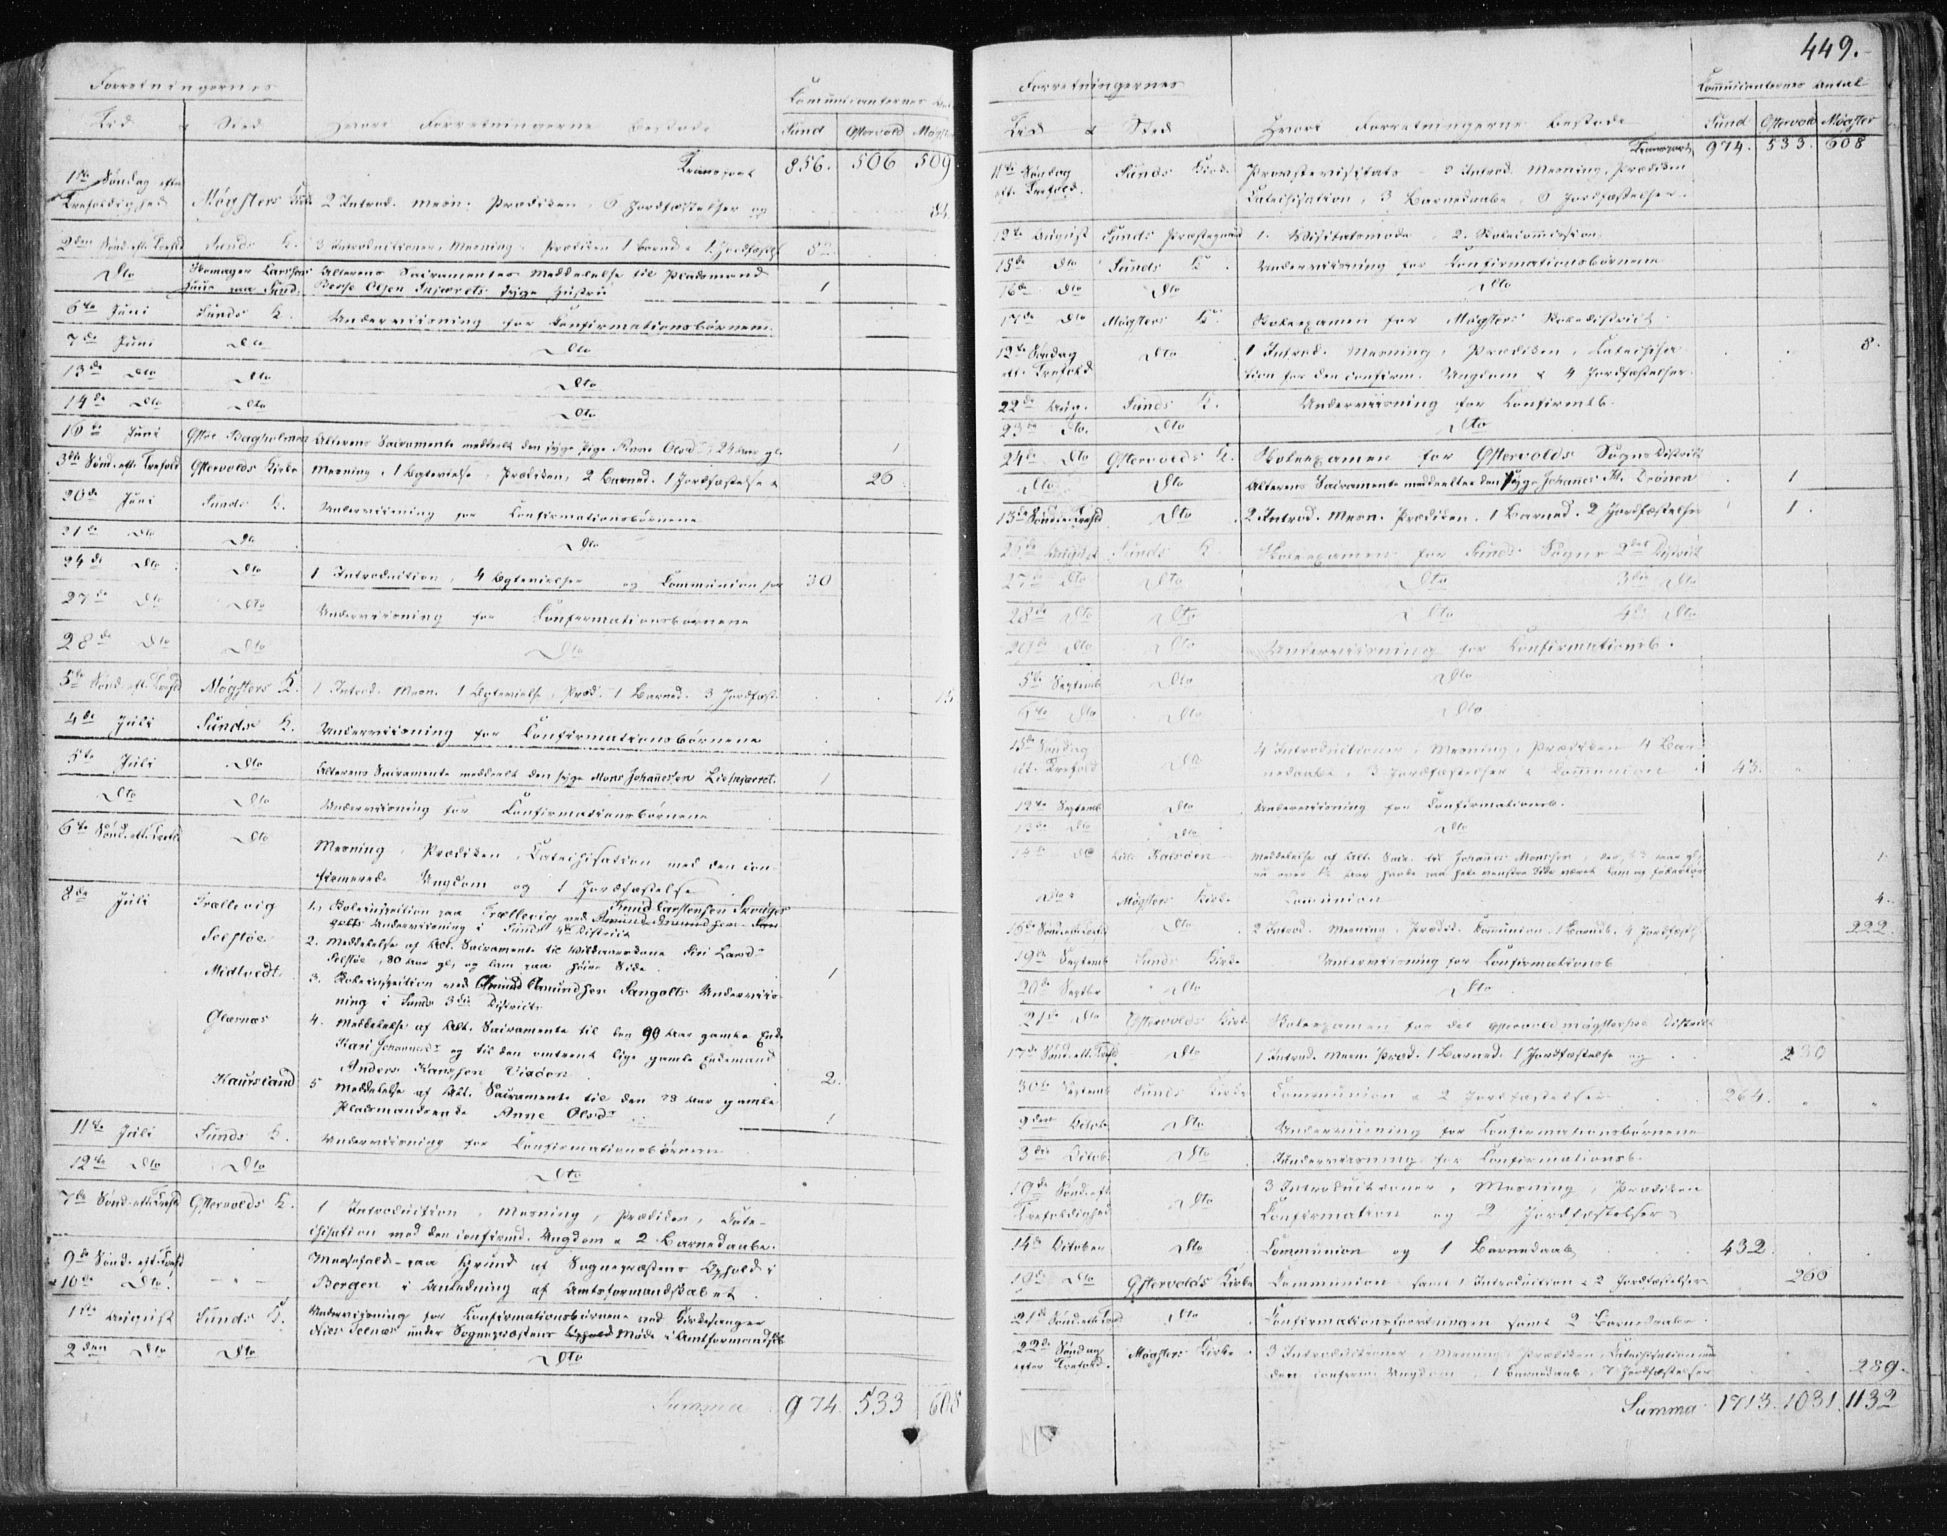 Forretningernes
Communicanternes
Tid & Sted Hvori Forretningerne bestode Sund Østervold Møgster
Transport 856. 506 509
1ste Søndag efter
Trefoldighed Møgsters Kirke 2 Introd. Mesn: Prædiken, 6 Jordfæstelser og 84.
2den Sønd. eft. Trefold Sunds K. 3 Introductioner, Mesning, Prædiken 1 Barned. & 1 Jordfæst. 82
Dto Alterens Sacramentes Meddelelse til Pladsmand
Olsen syge Hustru 1
6te Juni Sunds K. Underviisning for Confirmationsbørnene
7de Juni Dto Dto
13de Dto Dto Dto
14de Dto Dto Dto
16de Juni Alterens Sacramente meddeelt den syge Pige Anne Olsd. 24 Aar gl. 1
3die Sønd. eft. Trefold Østervolds Kirke Mesning, 1 Egtevielse, Prædiken, 2 Barned. 1 Jordfæstelse & 26
20de Juni Sunds K. Underviisning for Confirmationsbørnene
21de Dto Dto Dto
24de Dto Dto 1 Introduction, 4 Egtevielser og Communion for 30
27de Dto Dto Underviisning for Confirmationsbørnene
28de Dto Dto Dto
5te Sønd. eft. Trefold Møgsters K. 1 Introd. Mesn. 1 Egtevielse, Præd. 1 Barned. 3 Jordfæst. 15
4de Juli Sunds K. Underviisning for Confirmationsbørnene
5te Juli Dto Alterens Sacramente meddeelt den syge Mons Johannessen 1
Dto Dto Underviisning for Confirmationsbørnene
6te Sønd. eft. Trefold Dto Mesning, Prædiken, Catechisation med den con-
firmerede Ungdom og 1 Jordfæstelse
8de Juli Trællevig 1. Skoleinspection paa Trællevig ved Knud Carstensen
Underviisning i Sunds 4de District
Selstøe 2. Meddelelse af Alt. Sacramente til Siri Larsd.
Selstøe, 80 Aar gl. og lam paa høire Side 1
Midtvedt 3. Skoleinspection ved Amund Amundsen Sangolts Underviis-
ning i Sunds 3die District
Glesnæs 4. Meddelelse af Alt. Sacramente til den 90 Aar gamle Enke
Kari Johannesd. og til den omtrent lige gamle Enkemand
Anders Hansen Vixøen 2.
Kausland 5 Meddelelse af Alt. Sacramente til den 73 Aar gamle
Pladsmandsenke Anne Olsdr. 1
11te Juli Sunds K. Underviisning for Confirmationsbørnene
12te Dto Dto Dto
7de Sønd. eft. Trefold Østervolds K. 1 Introduction, Mesning, Prædiken, Cate-
chisation med den confirmd. Ungdom & 2 Barnedaabe.
9de Sønd. eft. Trefold Messefald paa Grund af Sognepræstens Ophold i
& 10de Dto - " - Bergen i Anledning af Amtsformandskabet
1ste August Sunds K. Underviisning for Confirmationsbørnene ved Kirkesanger
Nies Telnæs under Sognepræstens Møde i Amtsformandsk.
2den Dto Dto Dto
Summa 974. 533 608
449.
Forretningernes
Communicanternes Antal
Tid & Sted Hvori Forretningerne bestode Sund Østervold Møgster
Transport 974. 533. 608
11te Søndag
eft. Trefold. Sunds Kirke Provstevisitats - 2 Introd. Mesning, Prædiken
Catechisation, 3 Barnedaabe, 6 Jordfæstelser.
12te August Sunds Præstegaard 1. Visitatsmøde, 2. Skolecommission
15de Dto Sunds K. Underviisning for Confirmationsbørnene
16de Dto Dto Dto
17de Dto Møgsters K. Skoleexamen for Møgsters Skoledistrict
12te Søndag
eft. Trefold Dto 1 Introd. Mesning, Prædiken, Catechisa-
tion for den confirm. Ungdom & 4 Jordfæstelser. 8.
22de Aug. Sunds K. Underviisning for Confirmtsb.
23de Dto. Dto Dto
24de Dto Østervolds K. Skoleexamen for Østervolds Sogns District
Dto Dto Alterens Sacramente meddeeltes den syge Johannes 1
13de Sønd. e. Trefold Dto 2 Introd. Mesn. Prædiken. 1 Barned. 2 Jordfæstelser 1.
August Sunds K. Skoleexamen for Sunds Sogns 2det District
27de Dto Dto Dto 3die Dto
28de Dto Dto Dto 4de Dto
29de Dto Dto Underviisning for Confirmationsb.
5te Septemb Dto Dto
6te Dto Dto Dto
15de Søndag
eft. Trefold Dto 4 Introductioner, Mesning, Prædiken 4 Bar-
nedaabe, 3 Jordfæstelser & Communion 43. "
12te Septemb Dto Underviisning for Confirmationsb.
13de Dto Dto Dto
14de Dto Meddelelse af Alt. Sacr. til Johannes Monssen, 1
Dto Møgsters Kirke Communion 4.
16de Sønd. eft. Trefold Dto 2 Introd. Mesning, Prædik. Communion, 1 Barned. 4 Jordfæst. 222.
19de Septemb Sunds Kirke Underviisning for Confirmationsb
20de Septbr Dto Dto
21de Dto Østervolds Kirke Skoleexamen for det District
17de Sønd. eft. Trefold Dto 1 Introd. Mesn. Præd. 1 Barned. 1 Jordfæstelse og 230
30te Septemb Sunds Kirke Communion & 2 Jordfæstelser 264. " "
2den Octob. Dto Underviisning for Confirmationsbørnene
3die Octob. Dto Underviisning for Confirmationsb.
19de Sønd. eft.
Trefoldighed Dto 3 Introductioner, Mesning, Prædiken
Confirmation og 2 Jordfæstelser
14de October Dto Communion og 1 Barnedaab 432.
19de Dto Østervolds Kirke Communion samt 1 Introduction & 2 Jordfæstelser 260
21de Sønd. eft. Trefold Dto Confirmationsforretningen samt 2 Barnedaabe
22de Søndag
efter Trefold. Møgsters Kirke 3 Introductioner, Mesning, Prædiken, Catechisation med
den confirm. Ungdom, 1 Barnedaab, 7 Jordfæstelser 289.
Summa 1713. 1031. 1132